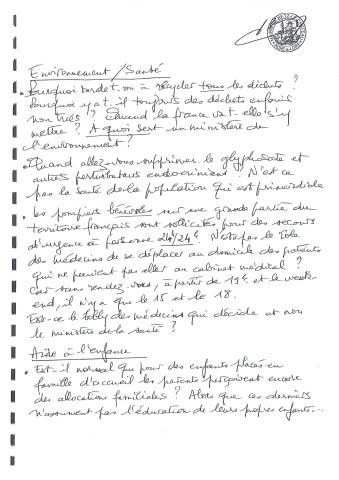 Environnement / Santé
• Pourquoi tarde t-on à recycler tous les déchets ?
Pourquoi y a t-il toujours des déchets enfouis
non triés ? Quand la france va t-elle s'y
mettre ? A quoi sert un ministère de
l'environnement ?
• Quand allez-vous supprimer le glyphosate et
autres perturbateurs endocriniens ? N'est ce
pas la santé de la population qui est primordiale
• Les pompiers bénévoles sur une grande partie du
territoire français sont sollicités pour des secours
d'urgence à personne 24h/24. N'est ce pas le rôle
des médecins de se déplacer au domicile des patients
qui ne peuvent pas aller au cabinet médical ?
Car sans rendez-vous, à partir de 19h et le week-
end, il n'y a que le 15 et le 18.
Est-ce le lobby des médecins qui décide et non
le ministère de la santé ?
Aide à l'enfance
• Est-il normal que pour des enfants placés en
famille d'accueil les parents perçoivent encore
des allocations familiales ? Alors que ces derniers
n'assument pas l'éducation de leurs propres enfants...